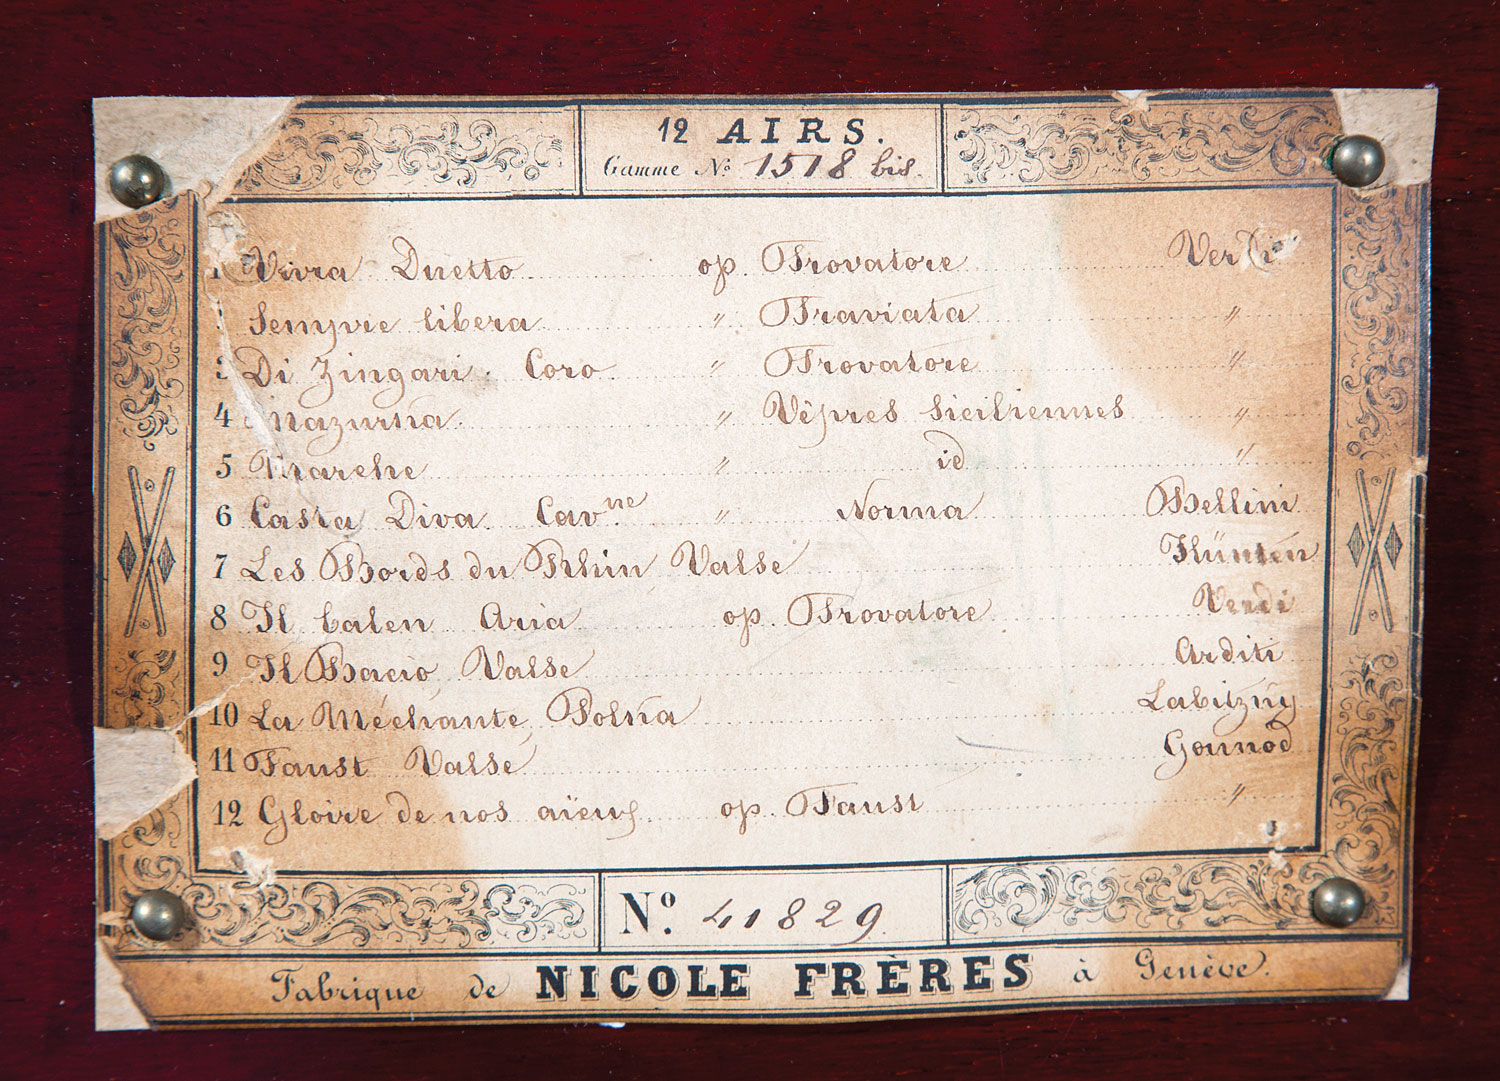 12 AIRS.
Gamme Nº 1518 bis.
1 Vivra Duetto op Trovatore Verdi
Sempre libera " Traviata "
3 Di Zingari Coro " Trovatore "
4 Mazurka " Vêpres siciliennes "
5 Marche " id "
6 Casta Diva Cavne " Norma Bellini
7 Les Bords du Rhin Valse Hünten
8 Il balen Aria op Trovatore Verdi
9 Il Bacio Valse Arditi
10 La Méchante Polka Labitzky
11 Faust Valse Gounod
12 Gloire de nos aïeux op Faust "
Nº. 41829
Fabrique de NICOLE FRÈRES à Genève.